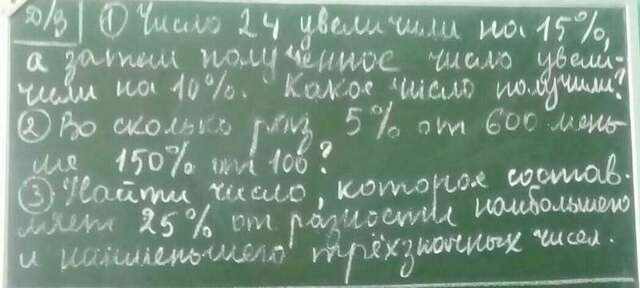 Д/З ① Число 24 увеличили на 15%,
а затем полученное число увели-
чили на 10%. Какое число получили?
② Во сколько раз 5% от 600 мень-
ше 150% от 100?
③ Найти число, которое состав-
ляет 25% от разности наибольшего
и наименьшего трёхзначных чисел.